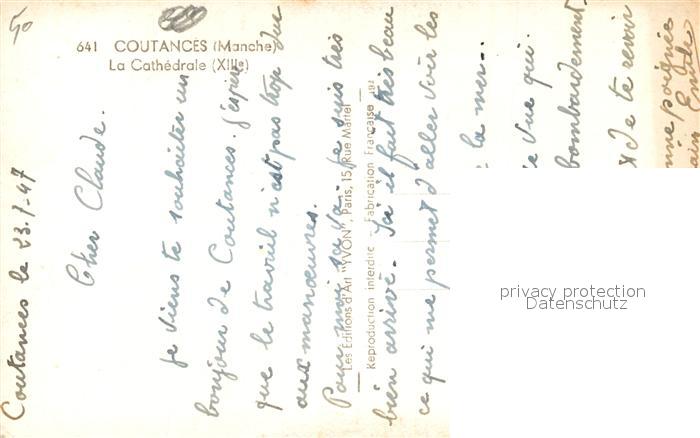 50
641 COUTANCES (Manche)
La Cathédrale (XIIIe)
Coutances le 23.7-47
Cher Claude.
je viens te souhaiter un
bonjour de Coutances. J'espère
que le travail n'est pas trop dur
aux manœuvres.
Pour moi sa va. je suis très
bien arrivé. Ici il fait très beau
ce qui me permet d'aller voir les
la mer...
vue qui.
bombardement
de te revoir
poignée
Les Editions d'Art "YVON", Paris, 15, Rue Martel
Reproduction interdite - Fabrication Française
privacy protection
Datenschutz